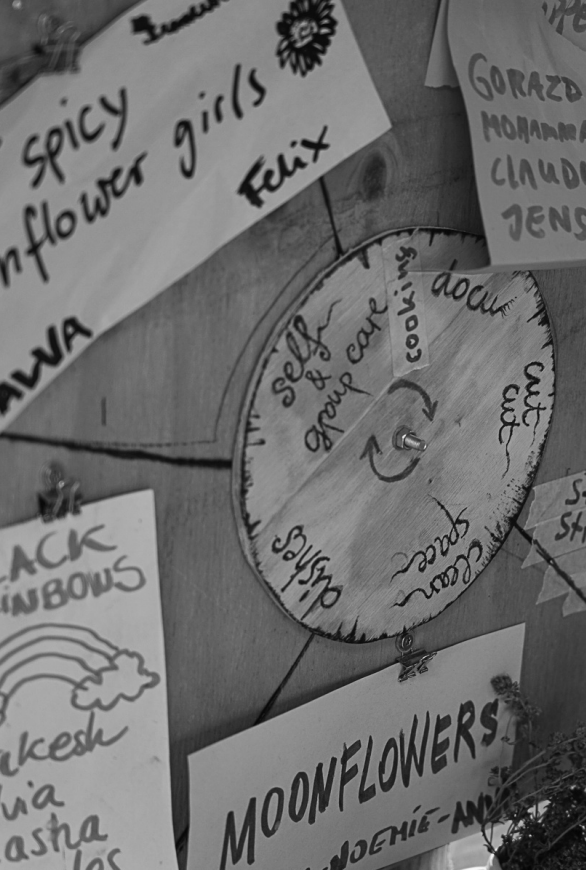 spicy
nflower girls
Felix
AWA
GORAZD
MOHAMMA
CLAUD
JENS
self
& 
group care
cooking
docu
cut
clean
space
dishes
LACK
INBOWS
akesh
via
asha
los
MOONFLOWERS
NOEMIE-ANN